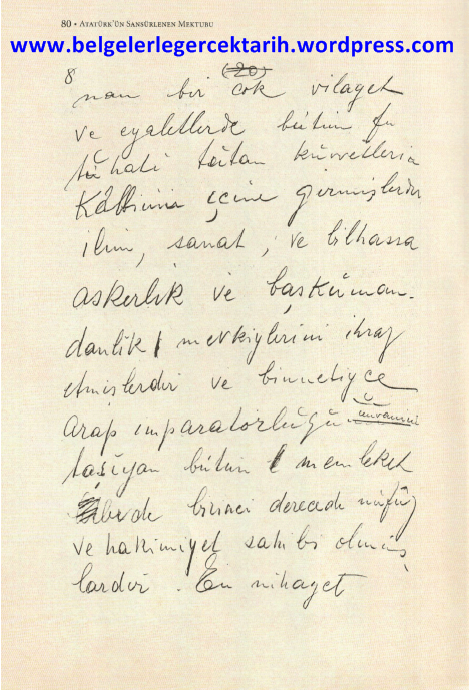 80 • ATATÜRK'ÜN SANSÜRLENEN MEKTUBU
www.belgelerlegercektarih.wordpress.com
8
(20)
nan bir çok vilayet
ve eyaletlerde bütün fu
tühatı tutan kuvvetlerin
içine girmişlerdir
ilim, sanat, ve bilhassa
askerlik ve başkuman-
danlık mevkiylerini ihraz
etmişlerdir ve binnetiyce
arap imparatorluğu ünvanını
taşıyan bütün memleket
lerde birinci derecede nüfuz
ve hakimiyet sahibi olmuş
lardır. En nihayet